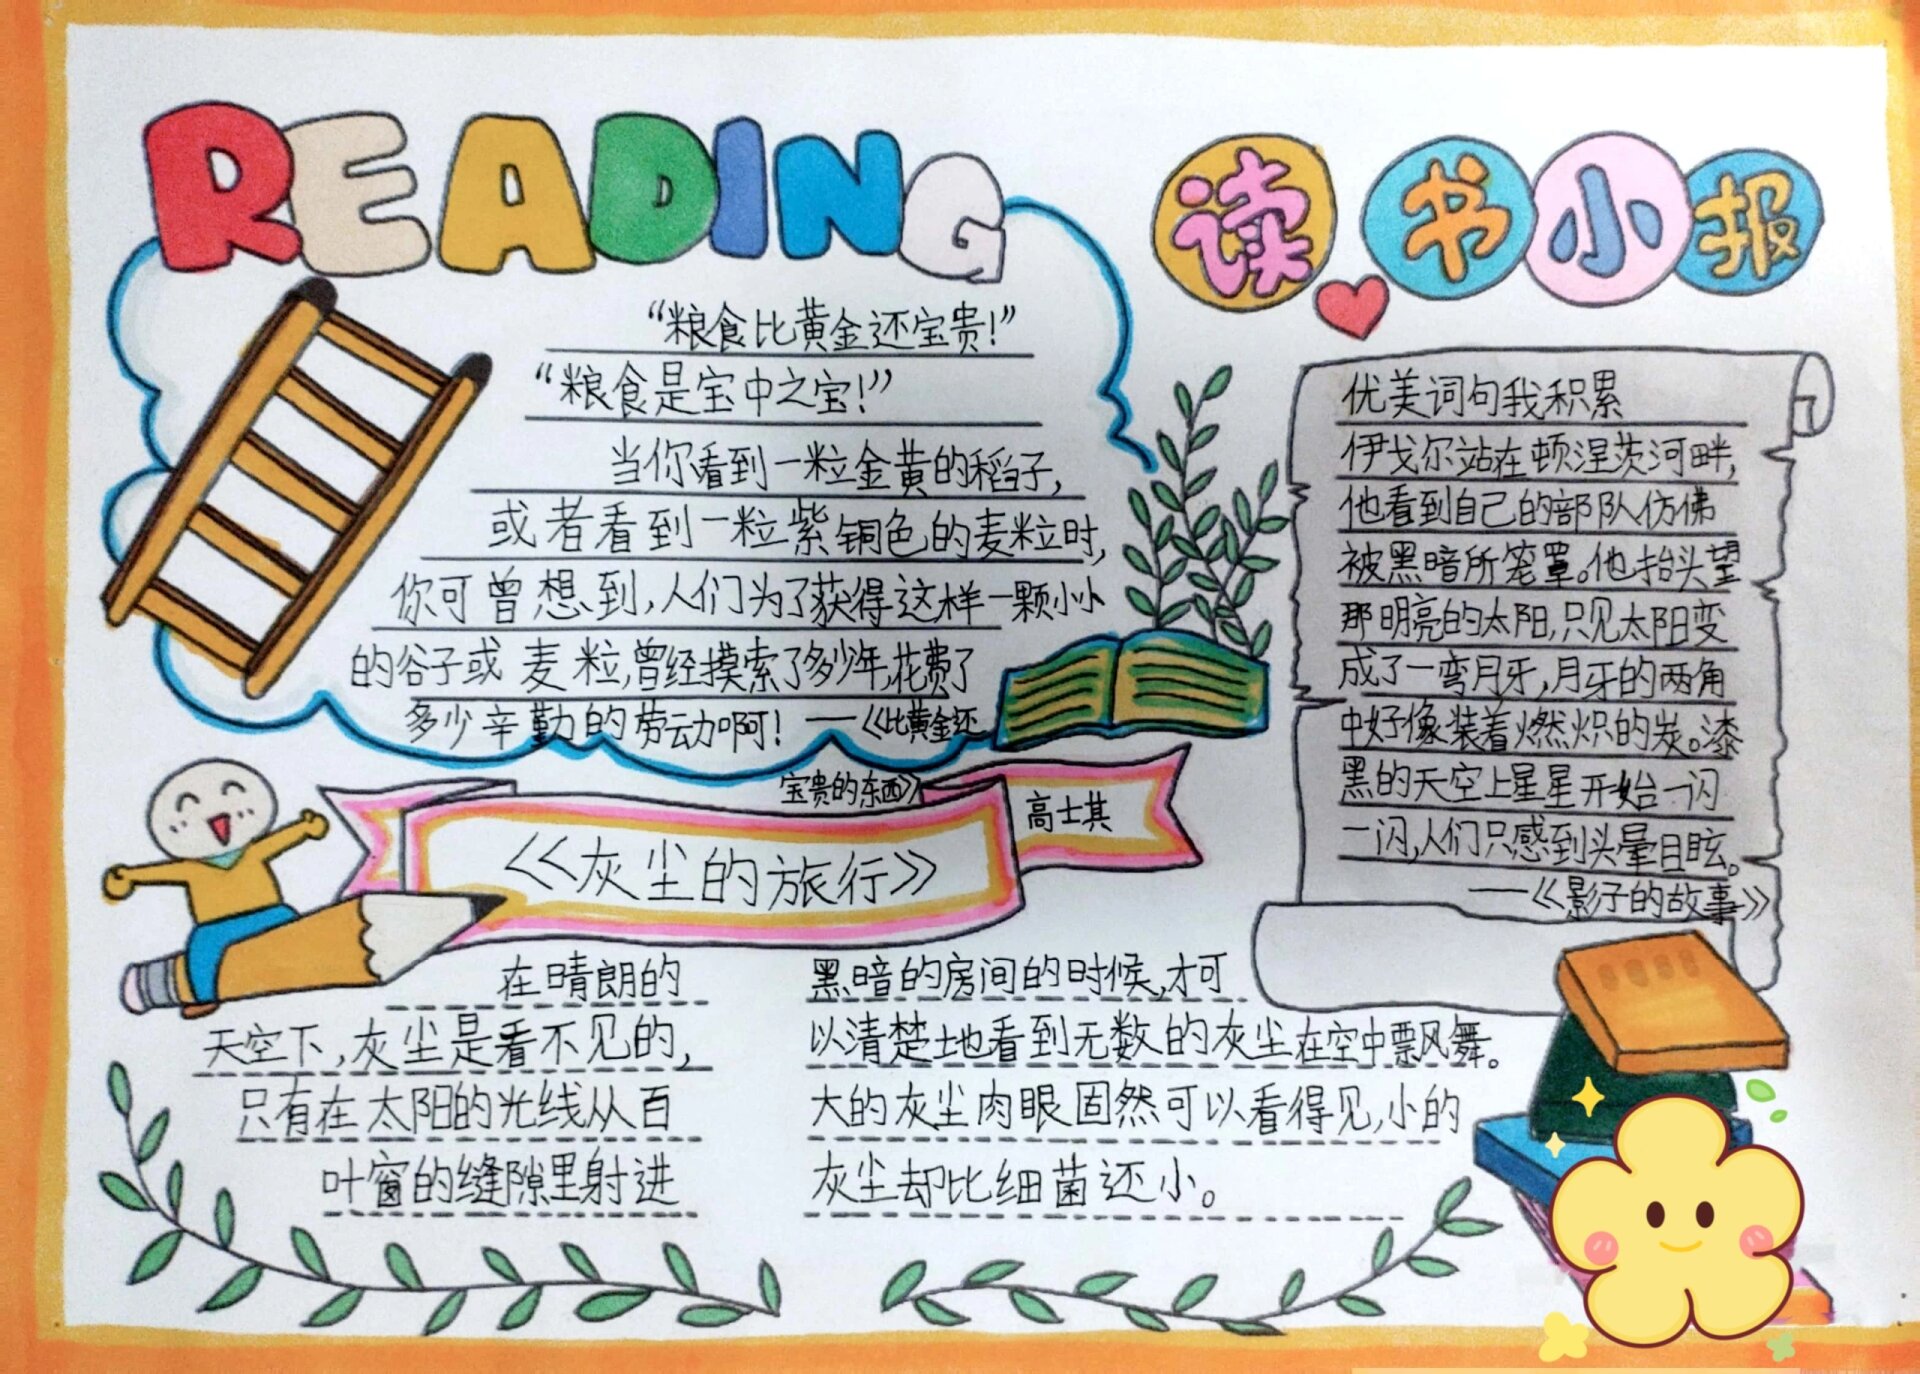 READING
读书小报
“粮食比黄金还宝贵！”
“粮食是宝中之宝！”
当你看到一粒金黄的稻子，
或者看到一粒紫铜色的麦粒时，
你可曾想到，人们为了获得这样一颗小小
的谷子或麦粒，曾经摸索了多少年，花费了
多少辛勤的劳动啊！——《比黄金还
宝贵的东西》
高士其
《灰尘的旅行》
在晴朗的
天空下，灰尘是看不见的，
只有在太阳的光线从百
叶窗的缝隙里射进
黑暗的房间的时候，才可
以清楚地看到无数的灰尘在空中飘舞。
大的灰尘肉眼固然可以看得见，小的
灰尘却比细菌还小。
优美词句我积累
伊戈尔站在顿涅茨河畔，
他看到自己的部队仿佛
被黑暗所笼罩。他抬头望
那明亮的太阳，只见太阳变
成了一弯月牙，月牙的两角
中好像装着燃炽的炭。漆
黑的天空上星星开始一闪
一闪，人们只感到头晕目眩。
——《影子的故事》